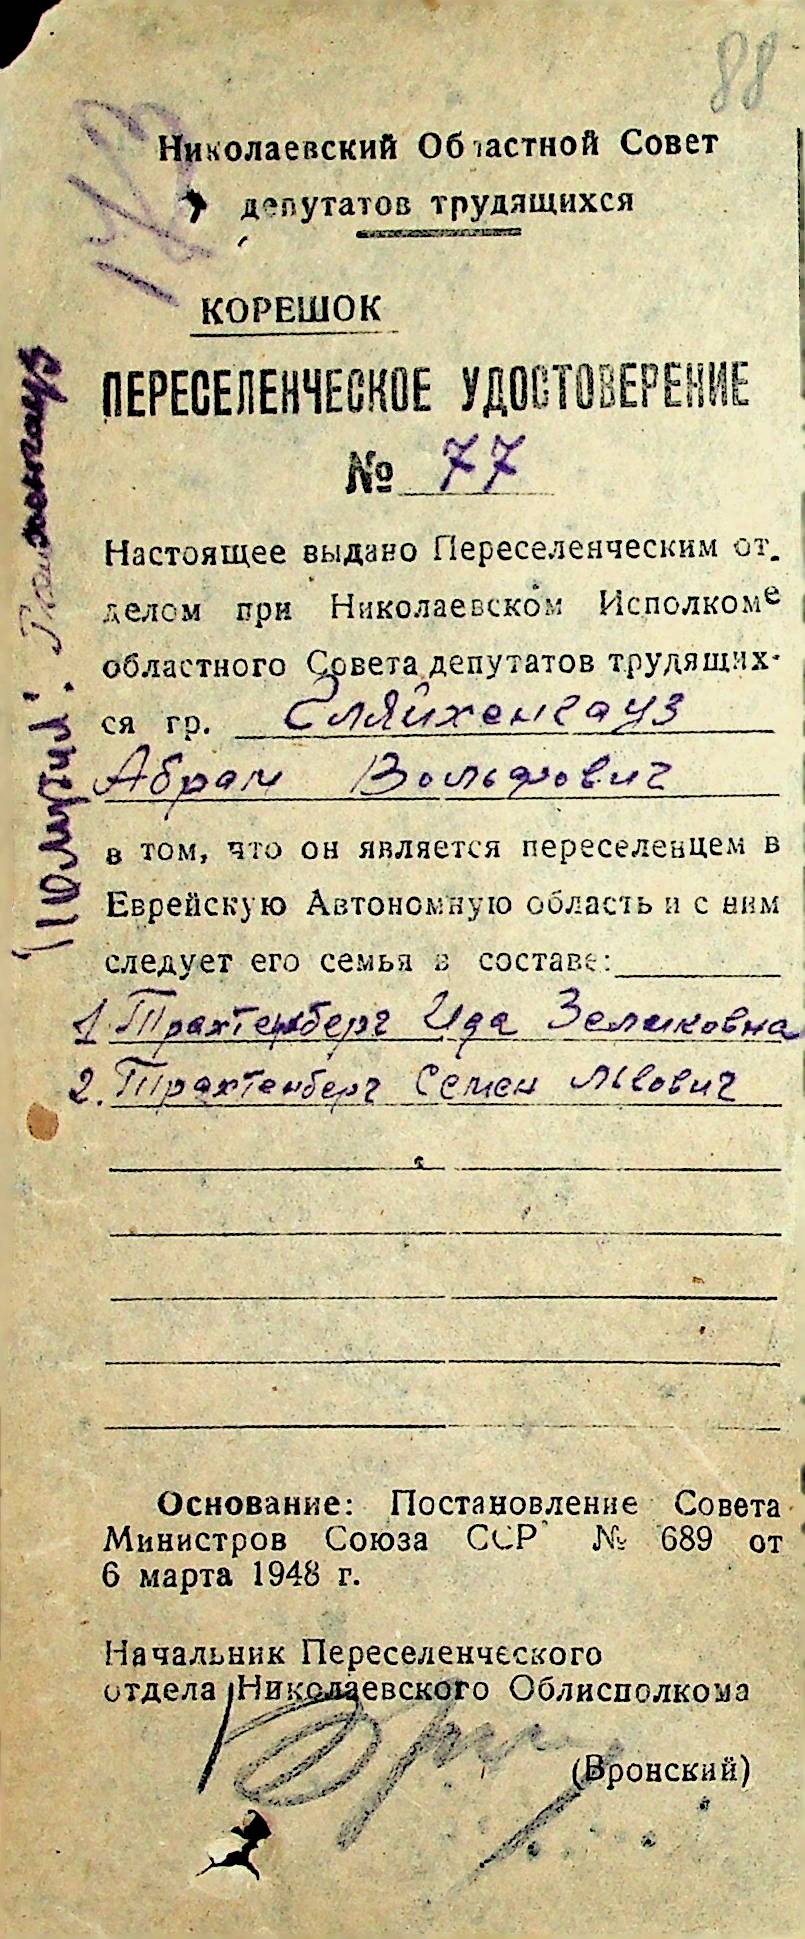 88
Николаевский Областной Совет
депутатов трудящихся
КОРЕШОК
ПЕРЕСЕЛЕНЧЕСКОЕ УДОСТОВЕРЕНИЕ
№ 77
Настоящее выдано Переселенческим от.
делом при Николаевском Исполкоме
областного Совета депутатов трудящих-
ся гр. Гляйхенгауз
Абрам Вольфович
в том, что он является переселенцем в
Еврейскую Автономную область и с ним
следует его семья в составе:
1. Трахтенберг Ида Зеликовна
2. Трахтенберг Семен Львович
Основание: Постановление Совета
Министров Союза ССР № 689 от
6 марта 1948 г.
Начальник Переселенческого
отдела Николаевского Облисполкома
(Вронский)
Получил: